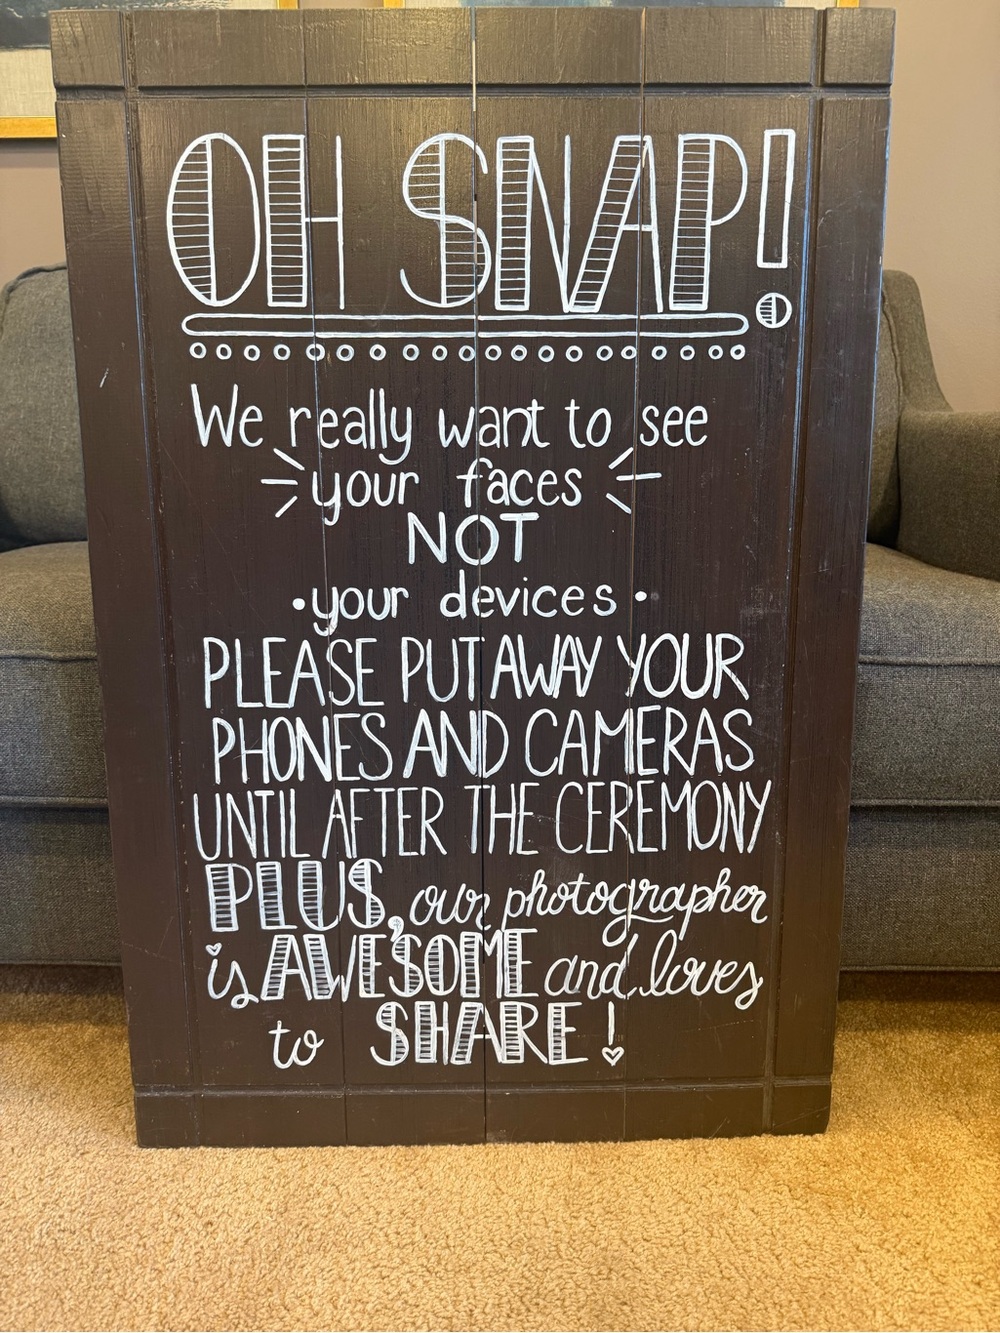 OH SNAP!
We really want to see
your faces
NOT
•your devices•
PLEASE PUT AWAY YOUR
PHONES AND CAMERAS
UNTIL AFTER THE CEREMONY
PLUS, our photographer
is AWESOME and loves
to SHARE!